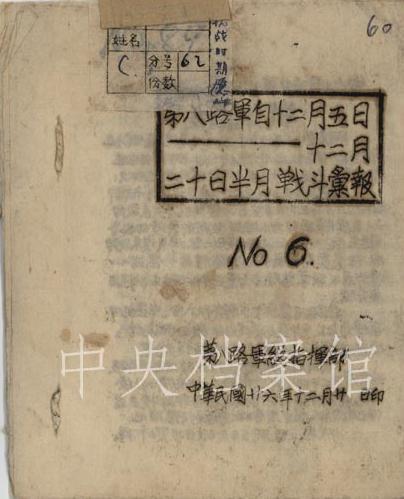 60
姓名
分号 62
份数
第八路軍自十二月五日
十二月
二十日半月戦斗彙報
No 6.
第八路軍總指揮部
中華民國廿六年十二月廿 日印
中央档案馆